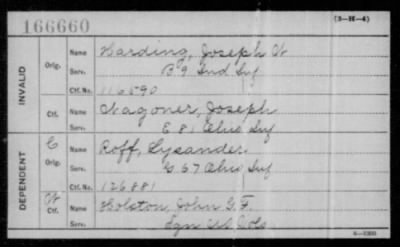 166660
(3-H-4)
INVALID
Orig. Name Harding, Joseph W
Serv. B 9 Ind Inf
Ctf. No. 116590
Ctf. Name Wagoner, Joseph
Serv. E 81 Ohio Inf
DEPENDENT
C Orig. Name Roff, Lysander
Serv. G 67 Ohio Inf
Ctf. No. 126881
W Ctf. Name Holston, John G. F.
Serv. Sgn US Vols